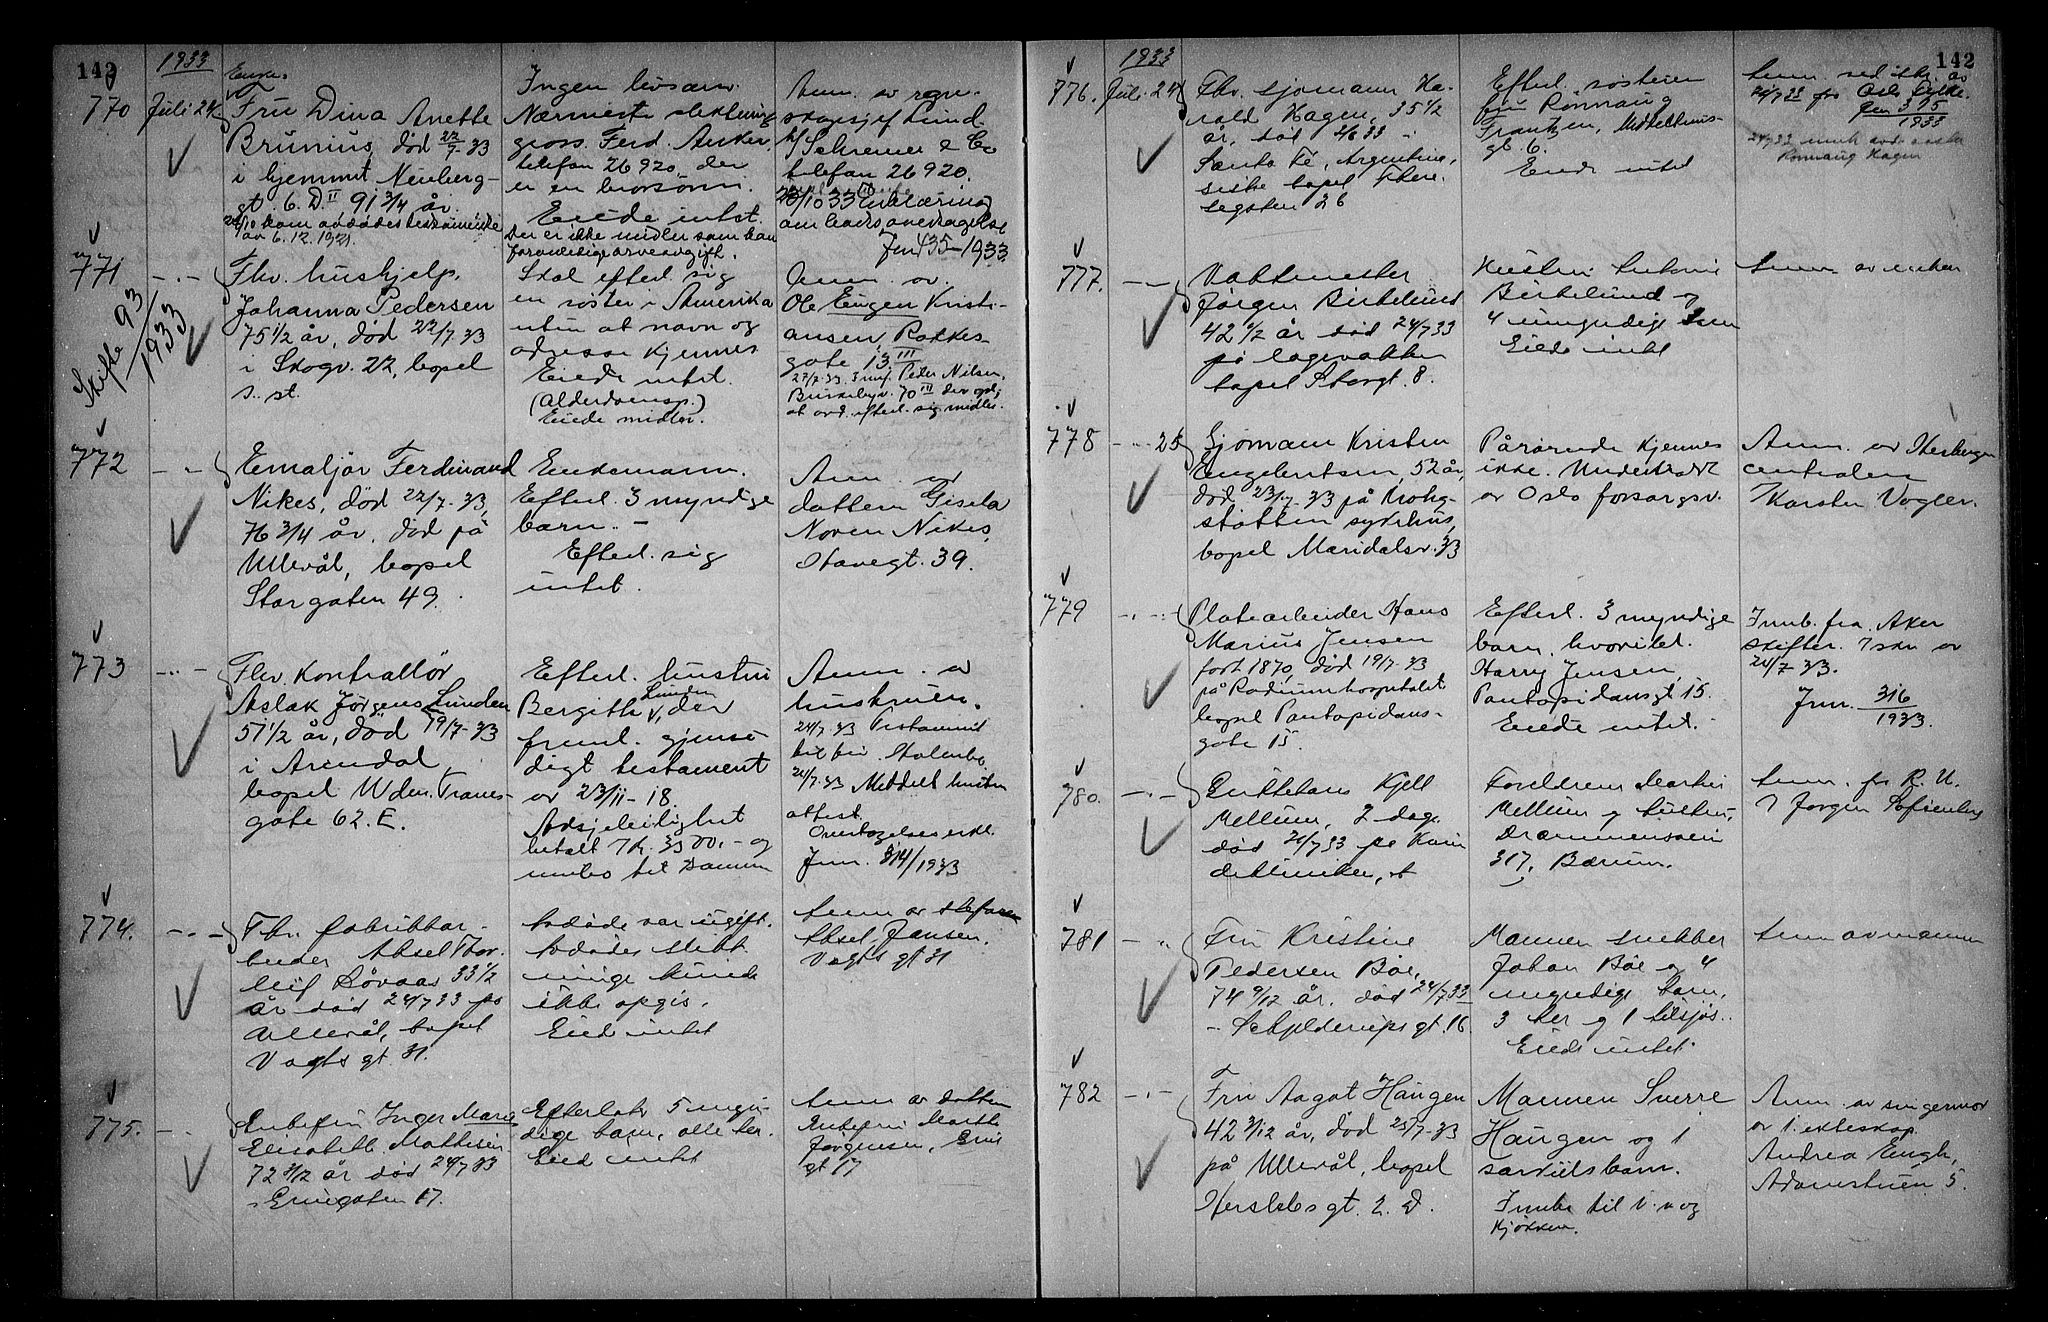 142
1933
770
Juli 24.
Enke.
Fru Dina Anette
Brunius, død 22/7-33
i hjemmet Neuberg-
gt. 6. D. II 91 3/4 år.
kom avdødes testamente
av 6.12.1921.
Ingen livsarv.
Nærmeste slektning
gross. Ferd. Anker,
telefon 26920, der
er en brorsønn.
Eiede intet.
Der er ikke midler som kan
Anm. av regn-
skapssjef Lind
Schreiner & Co
telefon 26920.
/10 33 Erklæring
om boets overtagelse
Jnr 435-1933.
771
Skifte 93/1933
Fhv. hushjelp.
Johanna Pedersen
75 1/2 år, død 22/7-33
i Skogv. 22, bopel
s. st.
Skal efterl. sig
en søster i Amerika
uten at navn og
adresse kjennes
Eiede intet.
(Alderdomsp.)
Eiede midler.
Anm. av
Ole Eugen Kristi-
ansen, Rakkes-
gate 13 III
27/7-33. Peder Nilsen,
70 III
at avd. efterl. sig midler.
772
Emaljør Ferdinand
Nikes, død 22/7-33,
76 3/4 år, død på
Ullevål, bopel
Storgaten 49.
Enkemann.
Efterl. 3 myndige
barn. -
Efterl. sig
intet.
Anm. av
datteren Gisela
Noren Nikes,
Stavegt. 39.
773
Fhv. kontrollør
Aslak Jørgens. Lunden
57 1/2 år, død 19/7-33
i Arendal,
bopel Uden. Tranes-
gate 62. E.
Efterl. hustru
Bergithe Lunden, der
freml. gjensi-
digt testament
av 23/11-18.
betalt kr. 3500,- og
innbo til samme
Anm. av
hustruen.
24/7-33 Testament
24/7-33 Meddelt hustru
attest.
Overtagelseserkl.
Jnr. 314/1933
774.
Fhv. fabrikkar-
beider Aksel Thor-
leif Løvaas 33 1/2
år død 24/7 33 på
Ullevål, bopel
Vogts gt 31.
Avdøde var ugift.
Avdødes slekt-
ninge kunde
ikke opgis.
Eied intet
Anm av stefaren
Aksel Jansen,
Vogts gt 31
775.
Enkefru Inger Marie
Elisabeth Mathisen
72 3/12 år død 24/7 33
Eriksgaten 17.
Efterlot 5 myn-
dige barn, alle her.
Eied intet
Anm av datter
Enkefru Marthe
Jørgensen,
gt 17
142
1933
776.
Juli 24.
Fhv. sjømann Ha-
rald Hagen, 35 1/2
år, død 2/6 33
Santa Fé, Argentina,
siste bopel There-
segaten 26
Efterl. søsteren
fru Ronnaug
Frantzen, Middelthuns-
gt. 6.
Eiede intet
Anm. ved skr. av
Oslo fylke.
Jnr 315/1933
Ronnaug Hagen
777.
Vaktmester
Jørgen Birkelund
42 1/2 år død 24/7 33
på lægevakten
bopel Storgt. 8.
Hustru Antonie
Birkelund og
4 umyndige barn
Eiede intet
Anm av enken
778
25
Sjømann Kristen
Engebretsen, 52 år,
død 23/7-33 på Krohg-
støtten sykehus,
bopel Maridalsv. 33
Pårørende kjennes
ikke. Understøttet
av Oslo forsorgsv.
Anm. av Herberge-
centralen
Karsten Vogler.
779
Platearbeider Hans
Marius Jensen
født 1870, død 19/7-33
på Radiumhospitalet
bopel Pontopidans-
gate 15.
Efterl. 3 myndige
barn, hvoriblt.
Harry Jensen,
Pontopidansgt 15.
Eiede intet.
Innb. fra Aker
skifter. skr av
24/7 33.
Jnr. 316/1933.
780.
Guttebarn Kjell
Mellum, 2 dage
død 20/7 33 på Kvin
deklinikken,
Foreldrene Martin
Mellum og hustru,
Drammensveien
317, Bærum.
Anm. fr R. H.
v/ Jørgen Sofienberg
781
Fru Kristine
Pedersen Bøe,
74 9/12 år, død 24/7 33
Schjelderups gt. 16.
Mannen snekker
Johan Bøe og 4
myndige barn,
3 her og 1 tilsjøs.
Eiede intet.
Anm av mannen
782
Fru Aagot Haugen
42 3/12 år, død 25/7-33
på Ullevål, bopel
Herslebs gt. 2. D.
Mannen Sverre
Haugen og 1
særkulsbarn.
Innbo til 1 v og
kjøkken.
Anm. av svigermor
av 1. ekteskap
Andrea Engh,
Adamstuen 5.